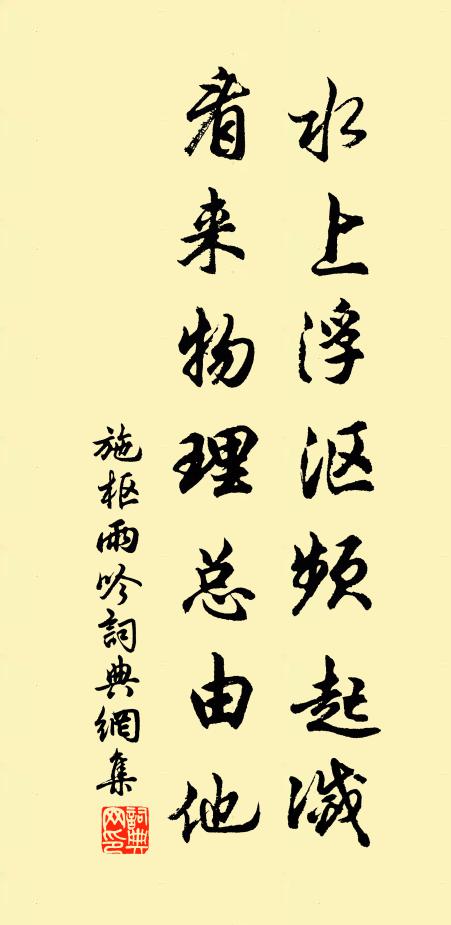 水上浮沤频起灭
看来物理总由他
施枢雨吟詞典網集
詞典网印